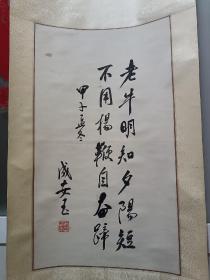 老牛明知夕陽短
不用楊鞭自奮蹄
甲子孟冬
成安玉